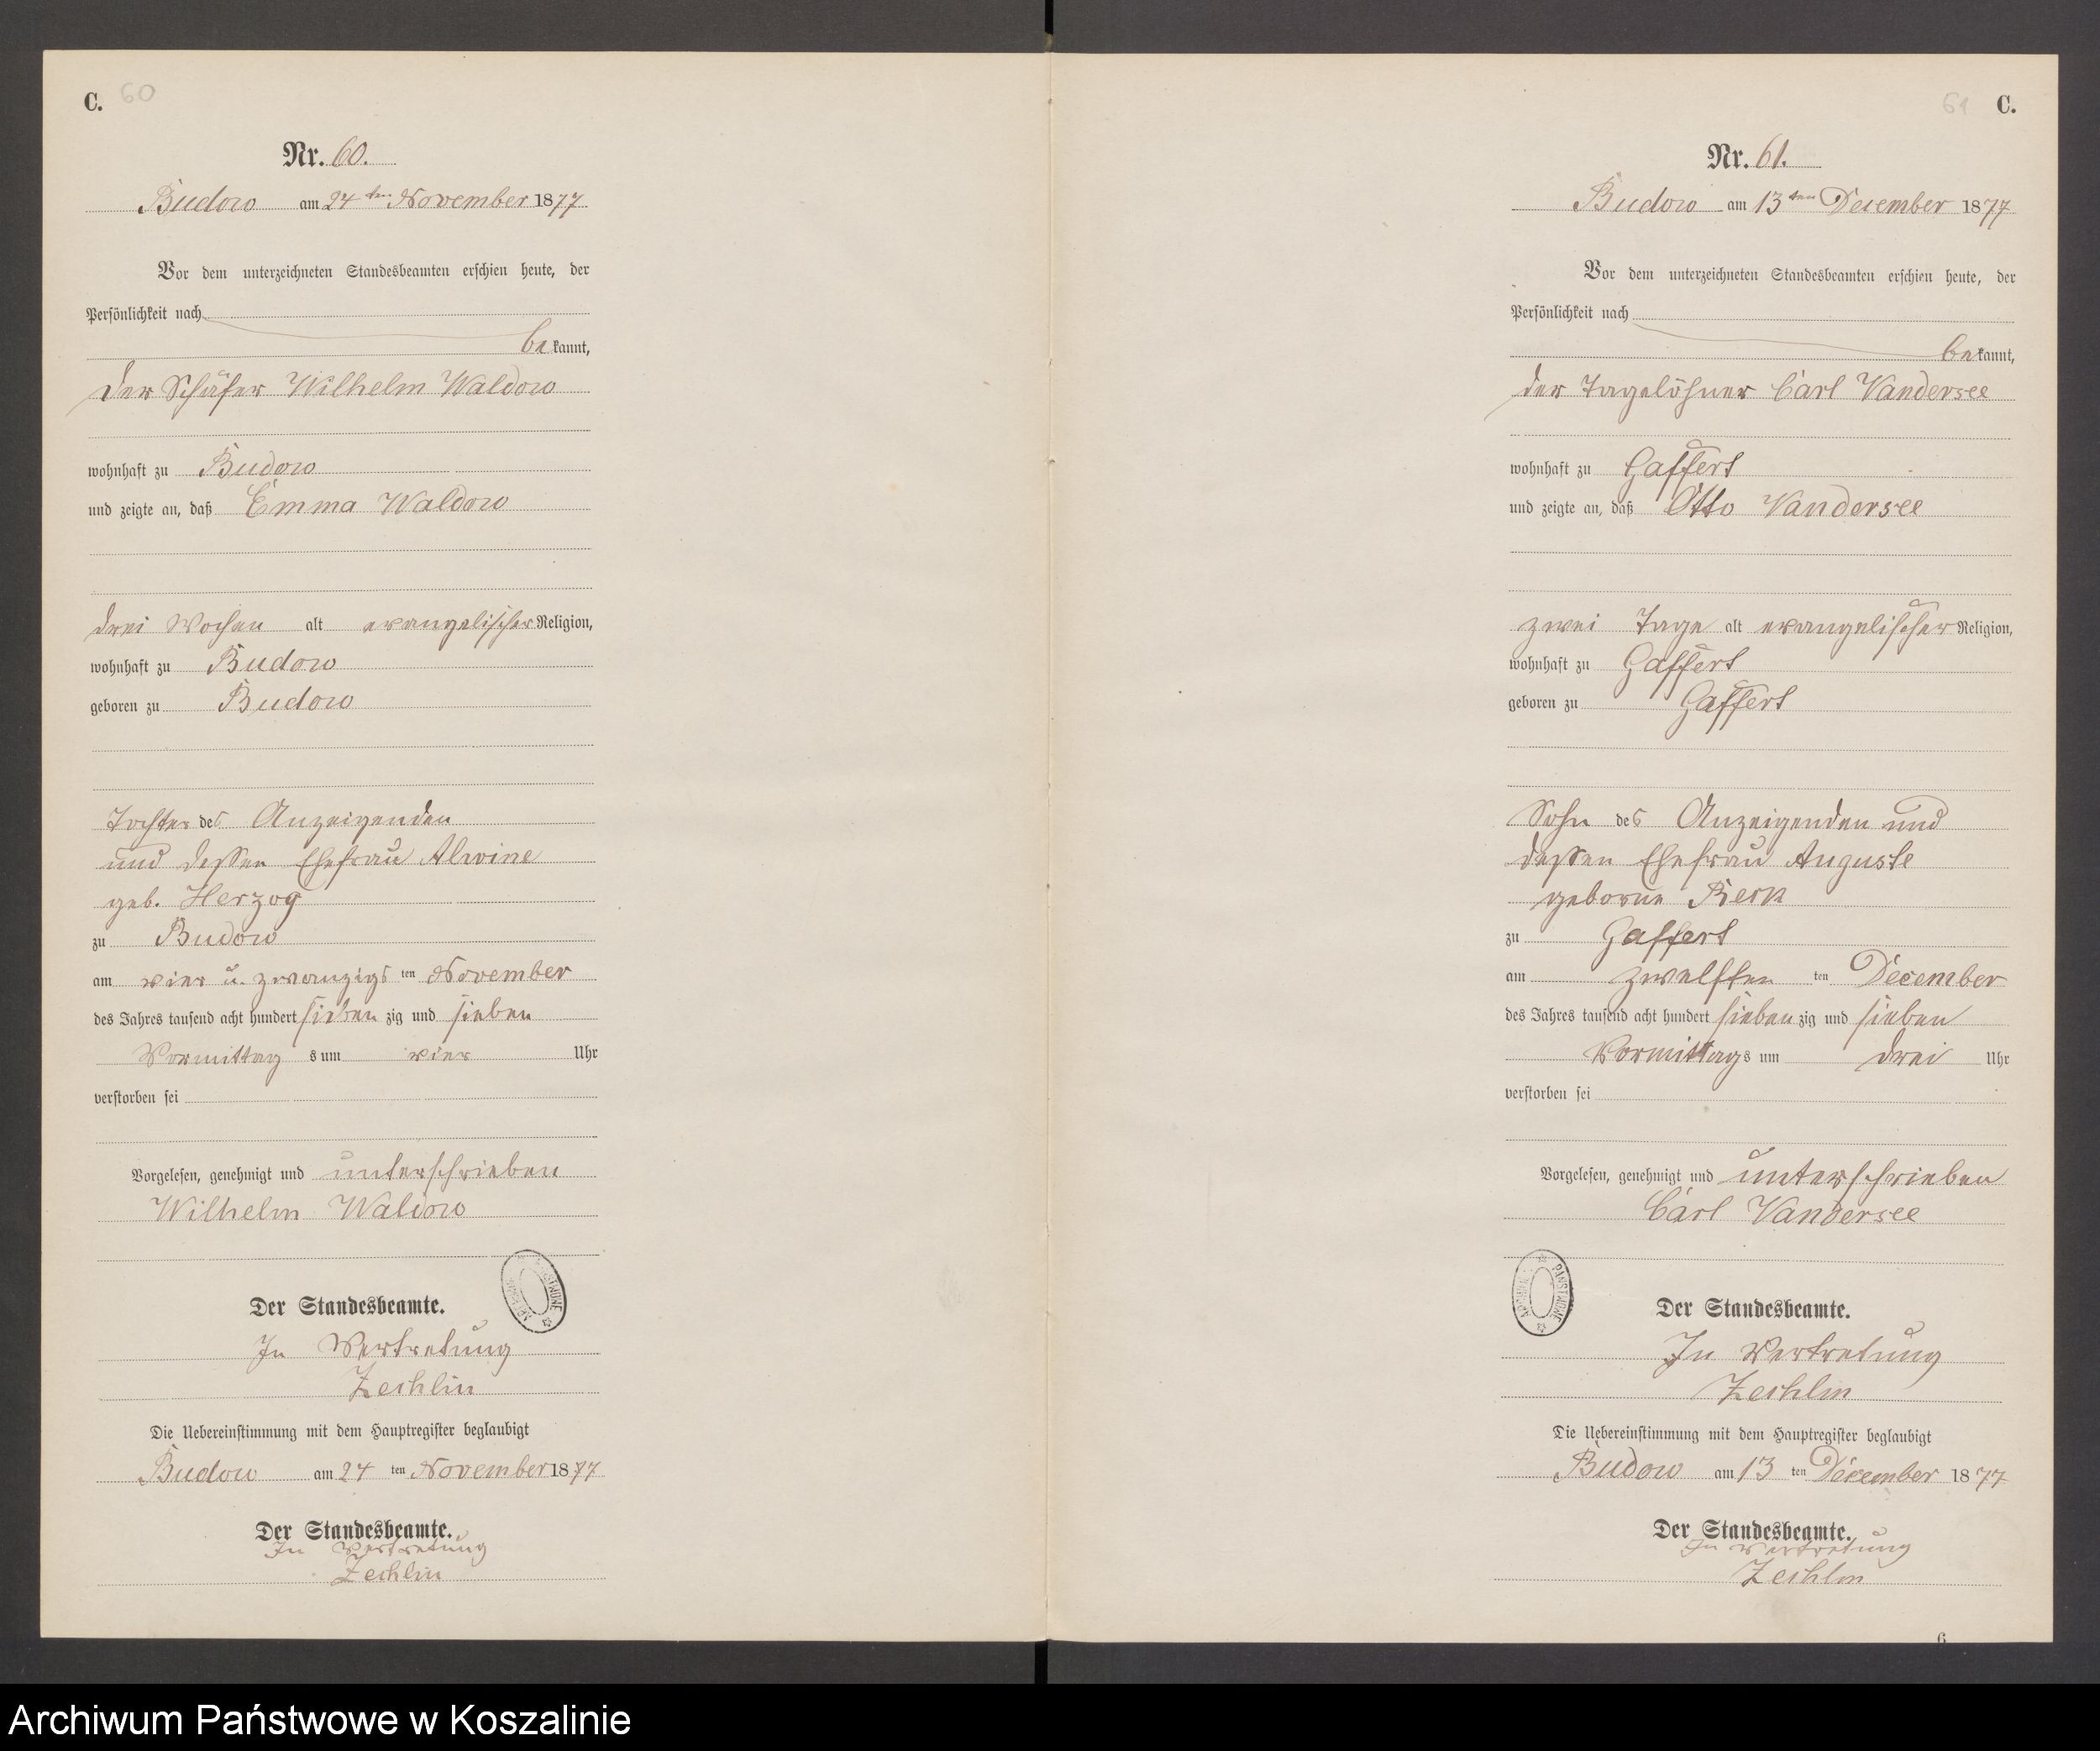 C. 60
Nr. 60.
Budow am 24ten November 1877
Vor dem unterzeichneten Standesbeamten erschien heute, der
Persönlichkeit nach
bekannt,
der Schäfer Wilhelm Waldow
wohnhaft zu Budow
und zeigte an, daß Emma Waldow
drei Wochen alt evangelischer Religion,
wohnhaft zu Budow
geboren zu Budow
Tochter des Anzeigenden
und dessen Ehefrau Alwine
geb. Herzog
zu Budow
am vier u. zwanzigsten November
des Jahres tausend acht hundert siebenzig und sieben
Vormittags um vier Uhr
verstorben sei
Vorgelesen, genehmigt und unterschrieben
Wilhelm Waldow
Der Standesbeamte.
In Vertretung
Zechlin
Die Uebereinstimmung mit dem Hauptregister beglaubigt
Budow am 24ten November 1877
Der Standesbeamte.
In Vertretung
Zechlin
61 C.
Nr. 61.
Budow am 13ten December 1877
Vor dem unterzeichneten Standesbeamten erschien heute, der
Persönlichkeit nach
bekannt,
der Tagelöhner Carl Vandersee
wohnhaft zu Gaffert
und zeigte an, daß Otto Vandersee
zwei Tage alt evangelischer Religion,
wohnhaft zu Gaffert
geboren zu Gaffert
Sohn des Anzeigenden und
dessen Ehefrau Auguste
geborne
zu Gaffert
am zwölften ten December
des Jahres tausend acht hundert siebenzig und sieben
Vormittags um drei Uhr
verstorben sei
Vorgelesen, genehmigt und unterschrieben
Carl Vandersee
ARCHIWUM PAŃSTWOWE
Der Standesbeamte.
In Vertretung
Zechlin
Die Uebereinstimmung mit dem Hauptregister beglaubigt
Budow am 13ten December 1877
Der Standesbeamte.
In Vertretung
Zechlin
6
Archiwum Państwowe w Koszalinie